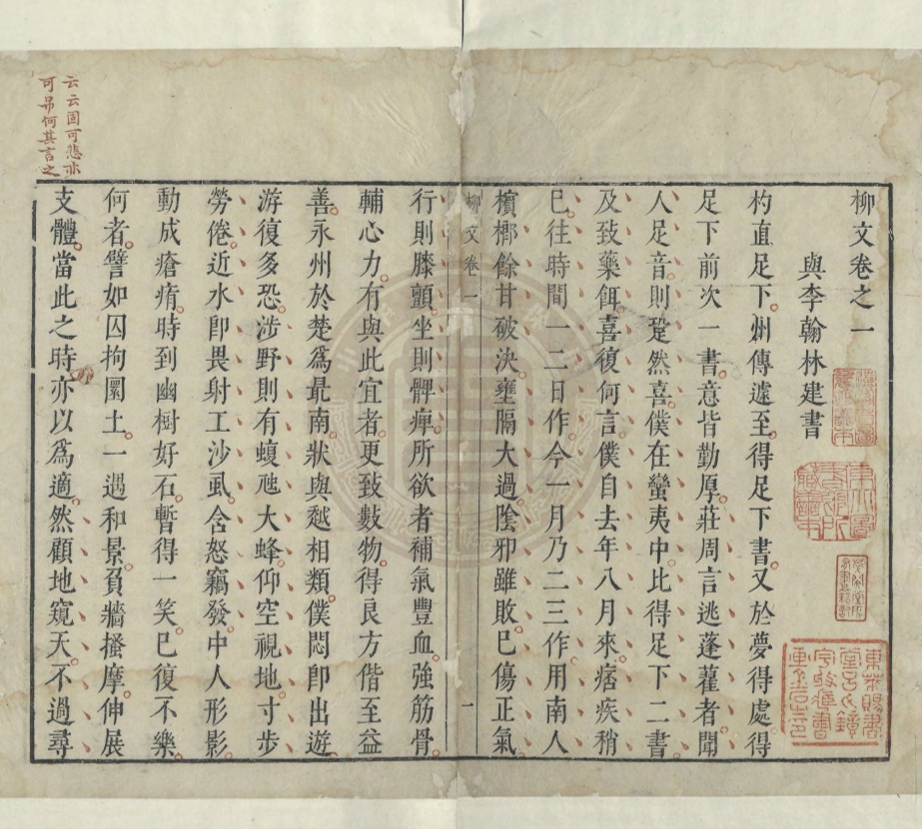 柳文卷之一
與李翰林建書
杓直足下州傳遽至得足下書又於夢得處得
足下前次一書意皆勤厚莊周言逃蓬藋者聞
人足音則跫然喜僕在蠻夷中比得足下二書
及致藥餌喜復何言僕自去年八月來痞疾稍
已往時間一二日作今一月乃二三作用南人
檳榔餘甘破決壅隔大過陰邪雖敗已傷正氣
柳文卷一
一
行則膝顫坐則髀痺所欲者補氣豐血強筋骨
輔心力有與此宜者更致數物得良方偕至益
善永州於楚為最南狀與越相類僕悶即出遊
游復多恐涉野則有蝮虺大蜂仰空視地寸步
勞倦近水即畏射工沙虱含怒竊發中人形影
動成瘡痏時到幽樹好石暫得一笑已復不樂
何者譬如囚拘圜土一遇和景負牆搔摩伸展
支體當此之時亦以為適然顧地窺天不過尋
云云固可悲亦
可弔何其言之